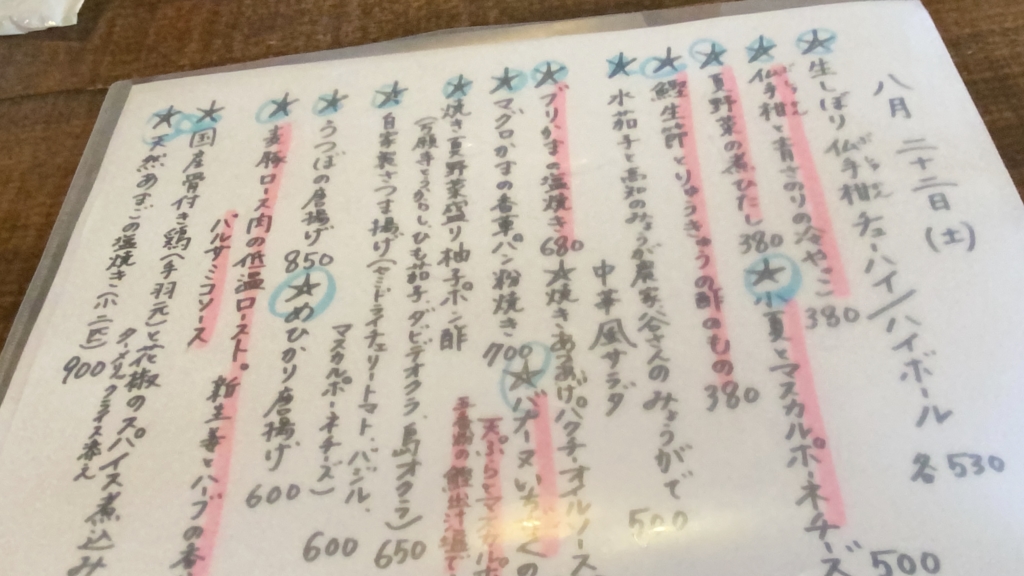 八月 二十二日(土)
★生しぼり仏手柑チューハイ/ハイボール 各530
★仏手柑と青さのりの冷ややっこ 380
★小夏とマスカルポーネチーズ 500
★夏野菜の煮びたし 380
★鰹生節とりゅうきゅうの酢のもの 380
★水茄子と高知のみょうが農家、谷さんのみょうがで
中華風サラダ 500
★ブリかまの塩焼き 680
★焼きあつあげパクチーオイルソース
★マグロかまの香草パン粉焼き 700
★バナーヌいちじくの
天ぷらとマスカルポ
★焼き夏野菜盛り柚子ポン酢
(万願寺とうがらし、ひも茄子、ダビデオクラ、島オクラ) 650
★自家製さつま揚げ(セミドライチェリートマト、バジル、
マスカルポーネチーズ) 600
★うつぼの唐揚げ 850
★めひかり唐揚げ 600
★麦豚ロース肉の低温ロースト。新生姜とハーブの香
バルサミコソース
★国産骨付き鶏(手羽元)と花椒のスパイス煮込み
クスクス添え
★天然あまごの塩焼き(小二匹) 900